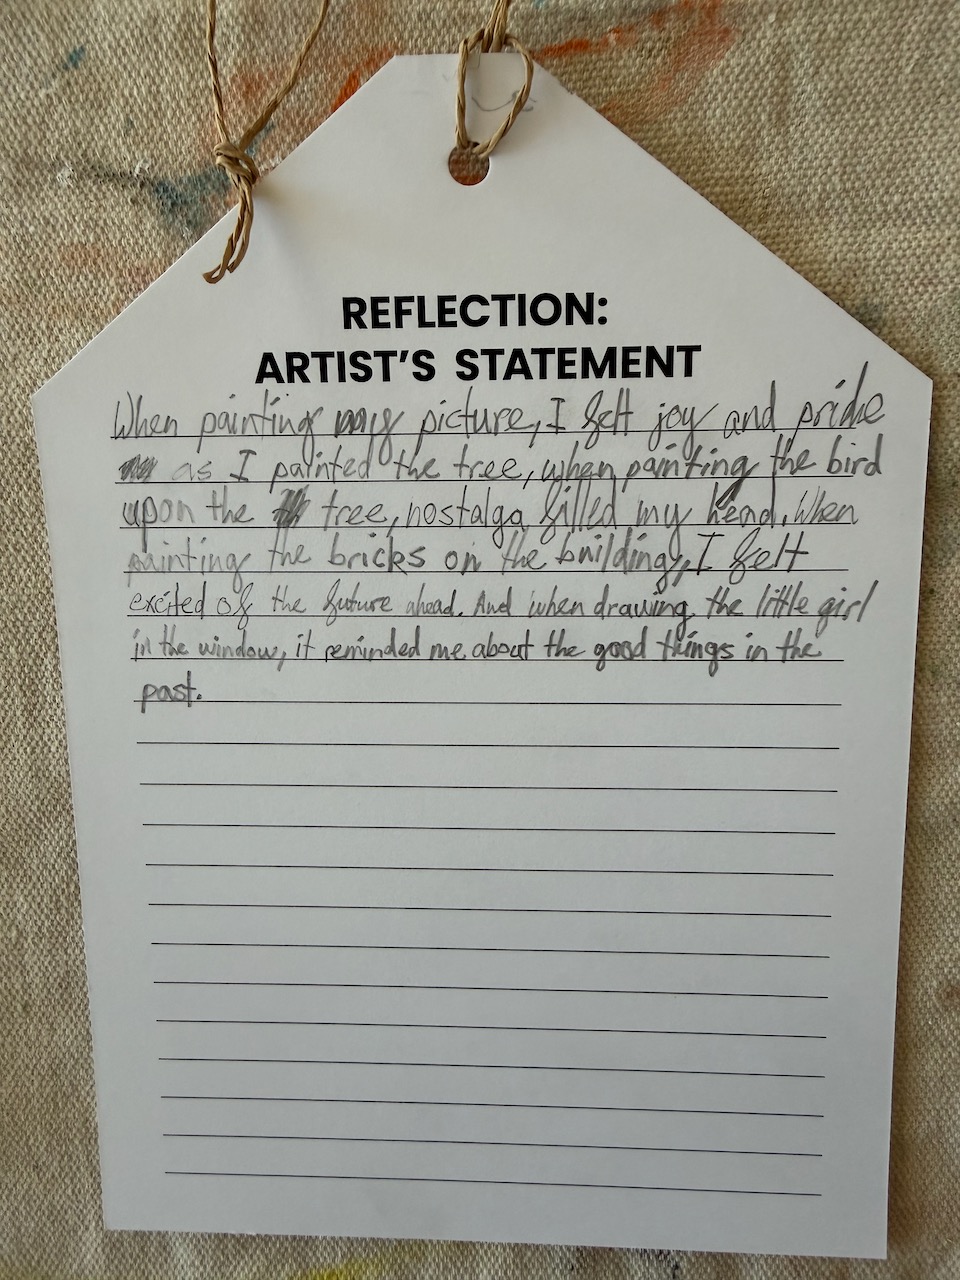 REFLECTION:
ARTIST'S STATEMENT
When painting my picture, I felt joy and pride
as I painted the tree, when painting the bird
upon the tree, nostalga filled my head. When
painting the bricks on the building, I felt
excited of the future ahead. And when drawing the little girl
in the window, it reminded me about the good things in the
past.